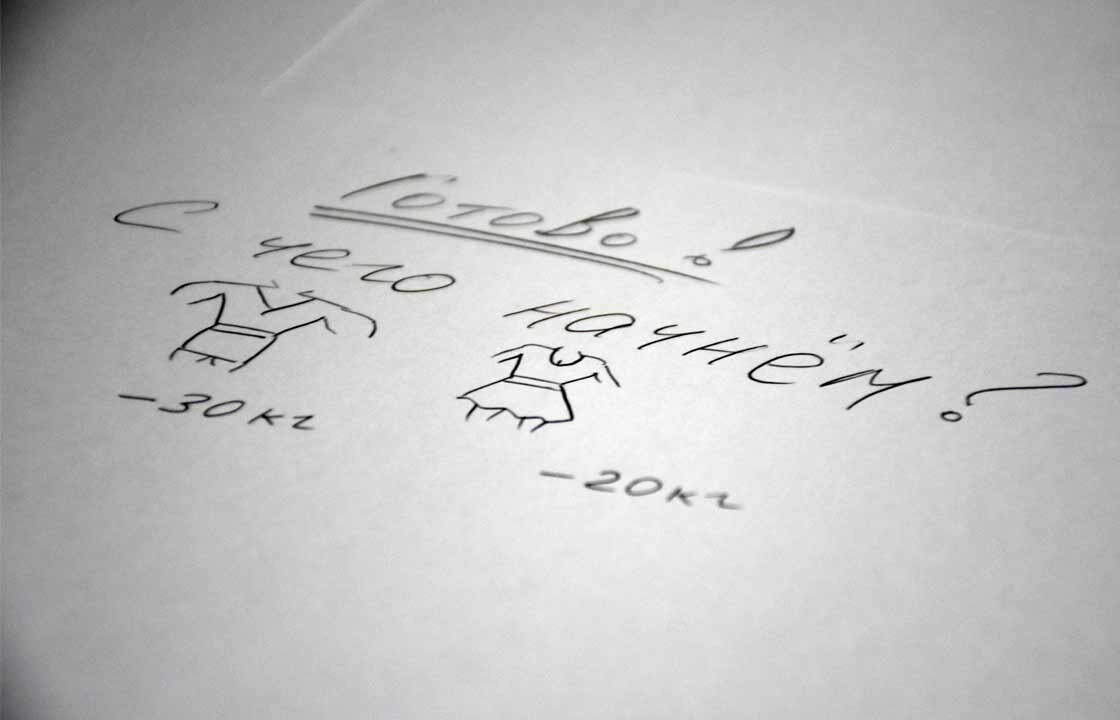 Готово!
С чего начнём?
-30 кг
-20 кг